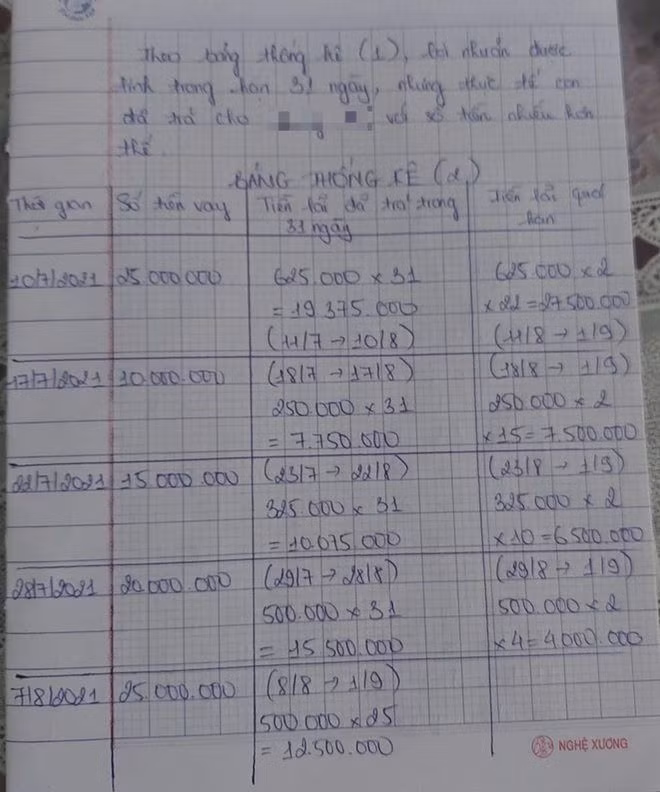 Theo bảng thống kê (1), lợi nhuận được
tính trong hạn 31 ngày, nhưng thực tế con
đã trả cho với số tiền nhiều hơn
thế.
BẢNG THỐNG KÊ (2)
Thời gian Số tiền vay Tiền lãi đã trả trong Tiền lãi quá
31 ngày hạn
10/7/2021 25.000.000 625.000 x 31 625.000 x 2
= 19.375.000 x 22 = 27.500.000
(11/7 → 10/8) (11/8 → 1/9)
17/7/2021 10.000.000 (18/7 → 17/8) (18/8 → 1/9)
250.000 x 31 250.000 x 2
= 7.750.000 x 15 = 7.500.000
22/7/2021 15.000.000 (23/7 → 22/8) (23/8 → 1/9)
325.000 x 31 325.000 x 2
= 10.075.000 x 10 = 6.500.000
28/7/2021 20.000.000 (29/7 → 28/8) (29/8 → 1/9)
500.000 x 31 500.000 x 2
= 15.500.000 x 4 = 4.000.000
7/8/2021 25.000.000 (8/8 → 1/9)
500.000 x 25
= 12.500.000
NGHỆ XƯƠNG